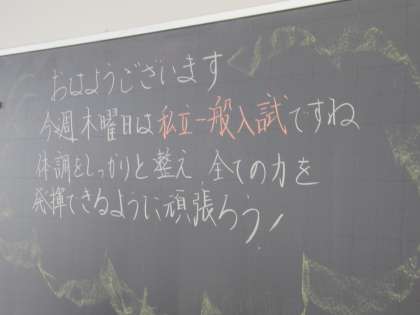 おはようございます
今週木曜日は私立一般入試ですね
体調をしっかりと整え 全ての力を
発揮できるように頑張ろう!